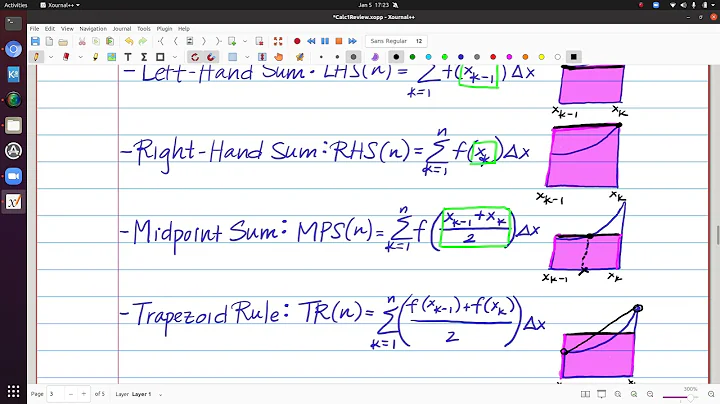 Activities Xournal++ Jan 5 17:23
*Calc1Review.xopp - Xournal++
File Edit View Navigation Journal Tools Plugin Help
Sans Regular 12
- Left-Hand Sum: LHS(n) = ∑_{k=1} f(x_{k-1}) Δx
x_{k-1} x_k
- Right-Hand Sum: RHS(n) = ∑_{k=1}^{n} f(x_k) Δx
x_{k-1} x_k
- Midpoint Sum: MPS(n) = ∑_{k=1}^{n} f((x_{k-1} + x_k)/2) Δx
x_{k-1} x_k
- Trapezoid Rule: TR(n) = ∑_{k=1}^{n} ((f(x_{k-1}) + f(x_k))/2) Δx
Page 3 of 5 Layer Layer 1 300%